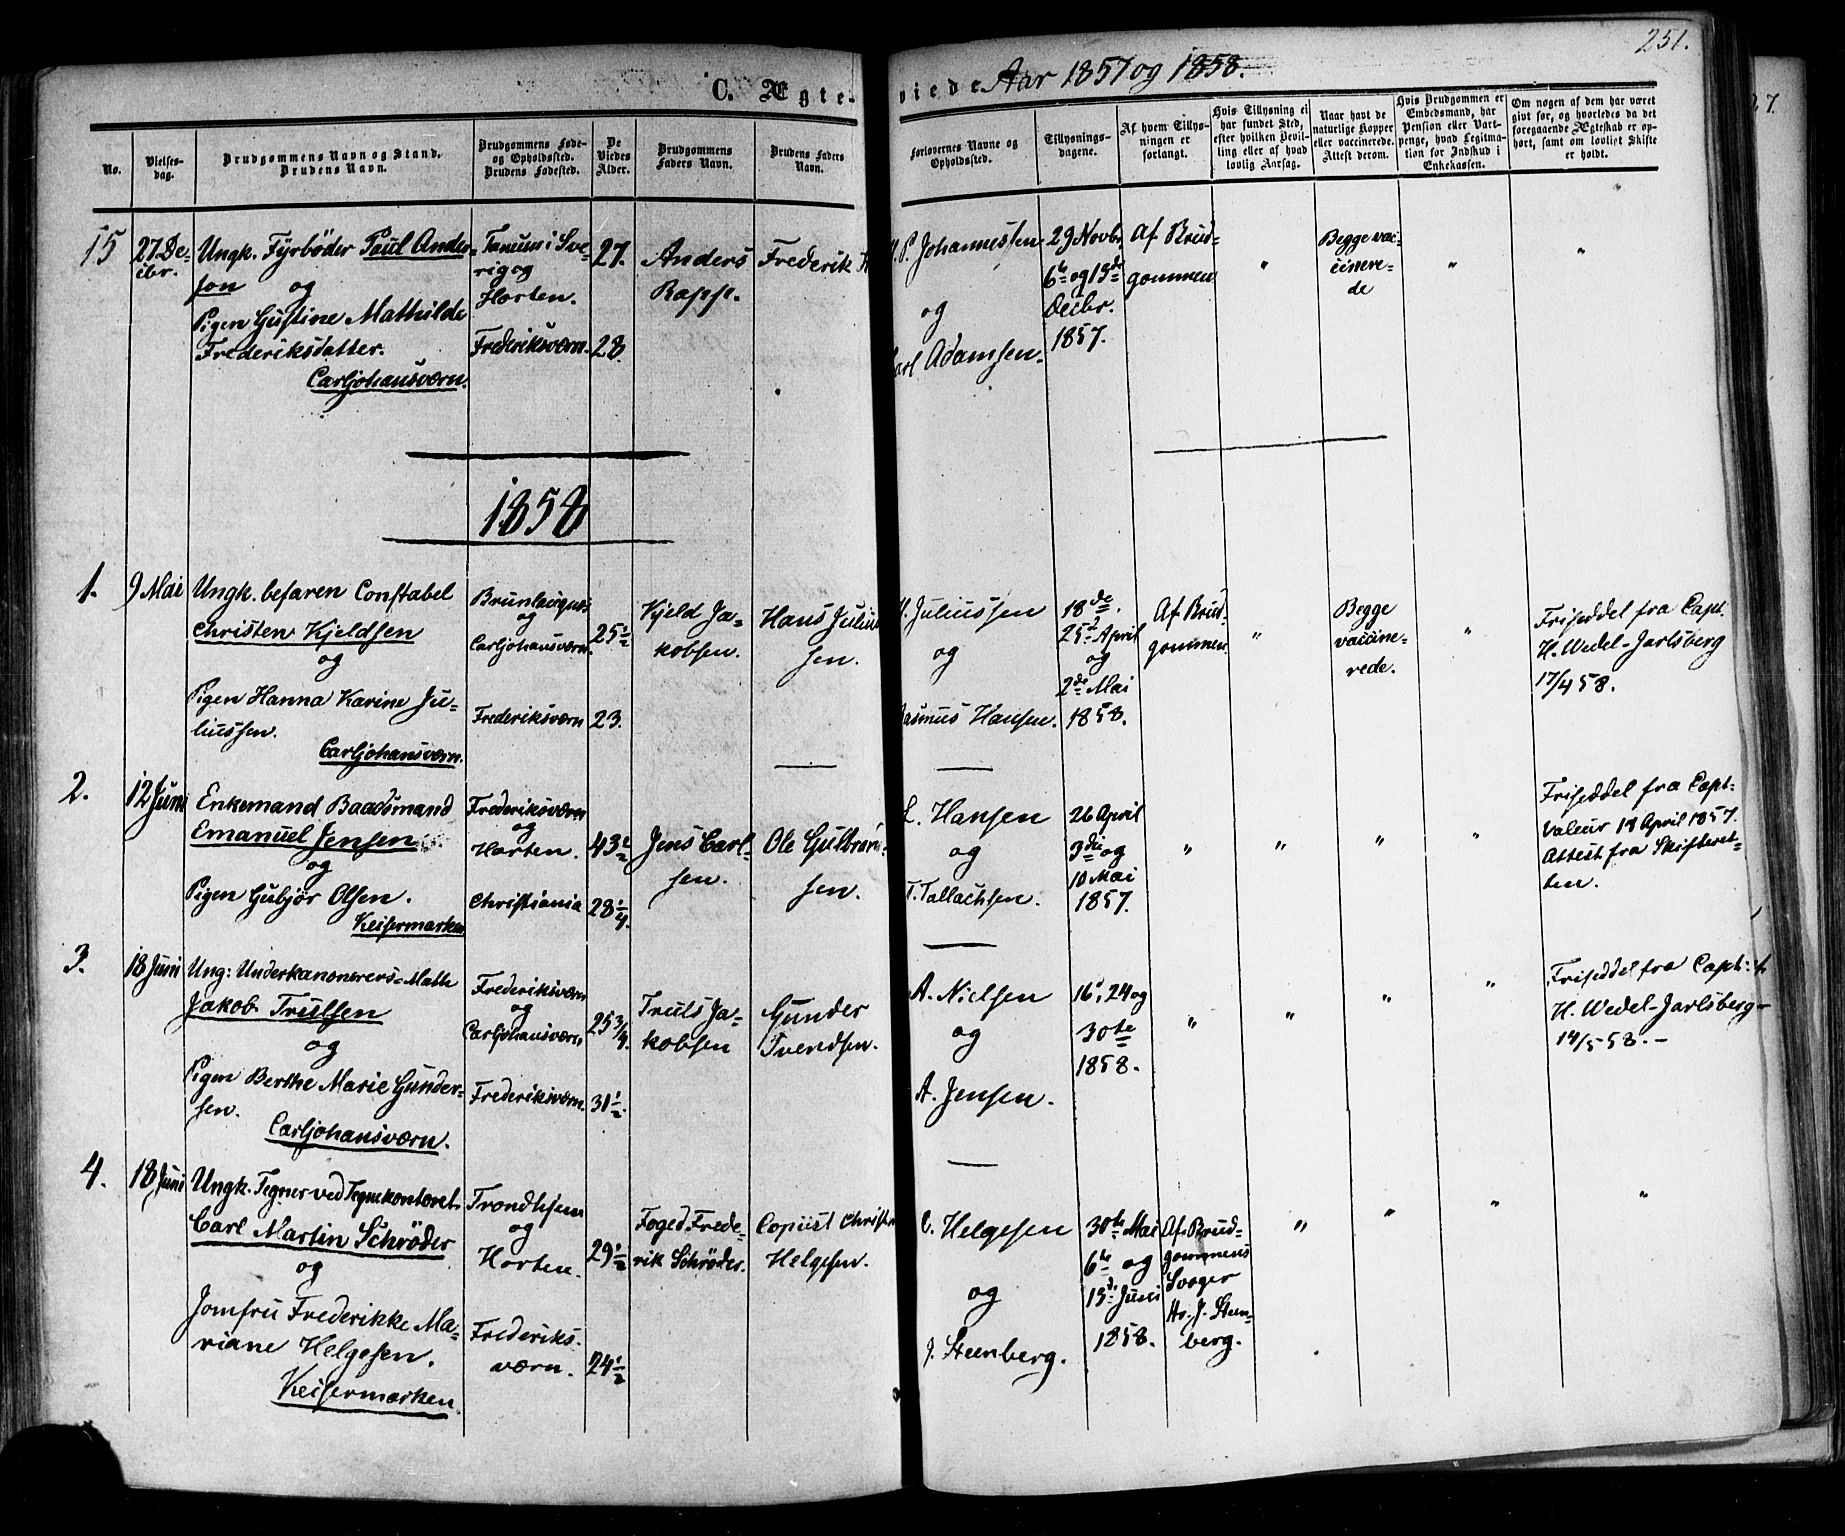 251.
C. Ægte-
viede Aar 1857 og 1858.
No.
Vielses-
dag.
Brudgommens Navn og Stand.
Brudens Navn.
Brudgommens Føde-
og Opholdssted.
Brudens Fødested.
De
Viedes
Alder.
Brudgommens
Faders Navn.
Brudens Faders
Navn.
Forlovernes Navne og
Opholdssted.
Tillysnings-
dagene.
Af hvem Tillys-
ningen er
forlangt.
Hvis Tillysning ei
har fundet Sted,
efter hvilken Bevil-
ling eller af hvad
lovlig Aarsag.
Naar havt de
naturlige Kopper
eller vaccinerede.
Attest derom.
Hvis Brudgommen er
Embedsmand, har
Pension eller Vart-
penge, hvad Legitma-
tion for Indskud i
Enkekassen.
Om nogen af dem har været
givt før, og hvorledes da det
foregaaende Ægteskab er op-
hørt, samt om lovligt Skifte
er holdt.
15
27 De-
cbr.
Ungk. Fyrbøder PaulAnder-
son og
Pigen Gustine Mathilde
Frederiksdatter.
Carljohansværn.
Tanum i Sve-
rig og
Horten.
Frederiksværn.
27.
28.
Anders
Rapp.
Frederik
P. Johannessen
og
Carl Adamsen.
29 Novbr.
6te og 13de
Decbr.
1857.
Af Brud-
gommen
"
Begge vac-
cinere-
de
"
"
1858
1.
9 Mai
Ungk. befaren Constabel
Christen Kjeldsen
og
Pigen Hanna Karine Ju-
liussen.
Carljohansværn.
Brunlaugnes
og
Carljohansværn.
Frederiksværn
25 1/2
23.
Kjeld Ja-
kobsen.
Hans Julius
sen.
H. Juliussen
og
Rasmus Hansen.
18de
25de April
og
2de Mai
1858.
Af Brud-
gommen.
"
Begge
vaccine-
rede.
"
Friseddel fra Capt.
H. Wedel-Jarlsberg
17/4 58.
2.
12 Juni
Enkemand Baadsmand
Emanuel Jensen
og
Pigen Gubjør Olsen.
Keisermarken
Frederiksværn
og
Horten.
Christiania
43 1/2
28 1/4.
Jens Carl-
sen.
Ole Gulbran
sen.
L. Hansen
og
T. Tallachsen.
26 April
3die og
10 Mai
1857.
"
"
"
"
Friseddel fra Capt:
Valeur 14 April 1857.
Attest fra Skifteret-
ten.
3.
18 Juni
Ung: Underkanonerers-Math
Jakob Trulsen
og
Pigen Berthe Marie Gunder-
sen.
Carljohansværn.
Frederiksværn
og
Carljohansværn
Frederiksværn.
25 3/4.
31 1/2.
Truls Ja-
kobsen
Gunder
Tvendsen.
A. Nielsen
og
A. Jensen.
16, 24 og
30te
1858.
"
"
"
"
Friseddel fra Capt:
H. Wedel-Jarlsberg
14/5 58. -
4.
18 Juni
Ungk. Tegner ved Tegnekontoret
Carl Martin Schrøder
og
Jomfru Frederikke Ma-
riane Helgesen.
Keisermarken.
Trondhjem
og
Horten.
Frederiks-
værn.
29 1/2
24 1/2
Foged Frede-
rik Schrøder.
Copiist Christen
Helgesen.
C. Helgesen
og
J. Steenberg.
30te Mai
6te og
13de Juni
1858.
Af Brud-
gommens
Svoger
Hr. J. Steen-
berg.
"
"
"
"